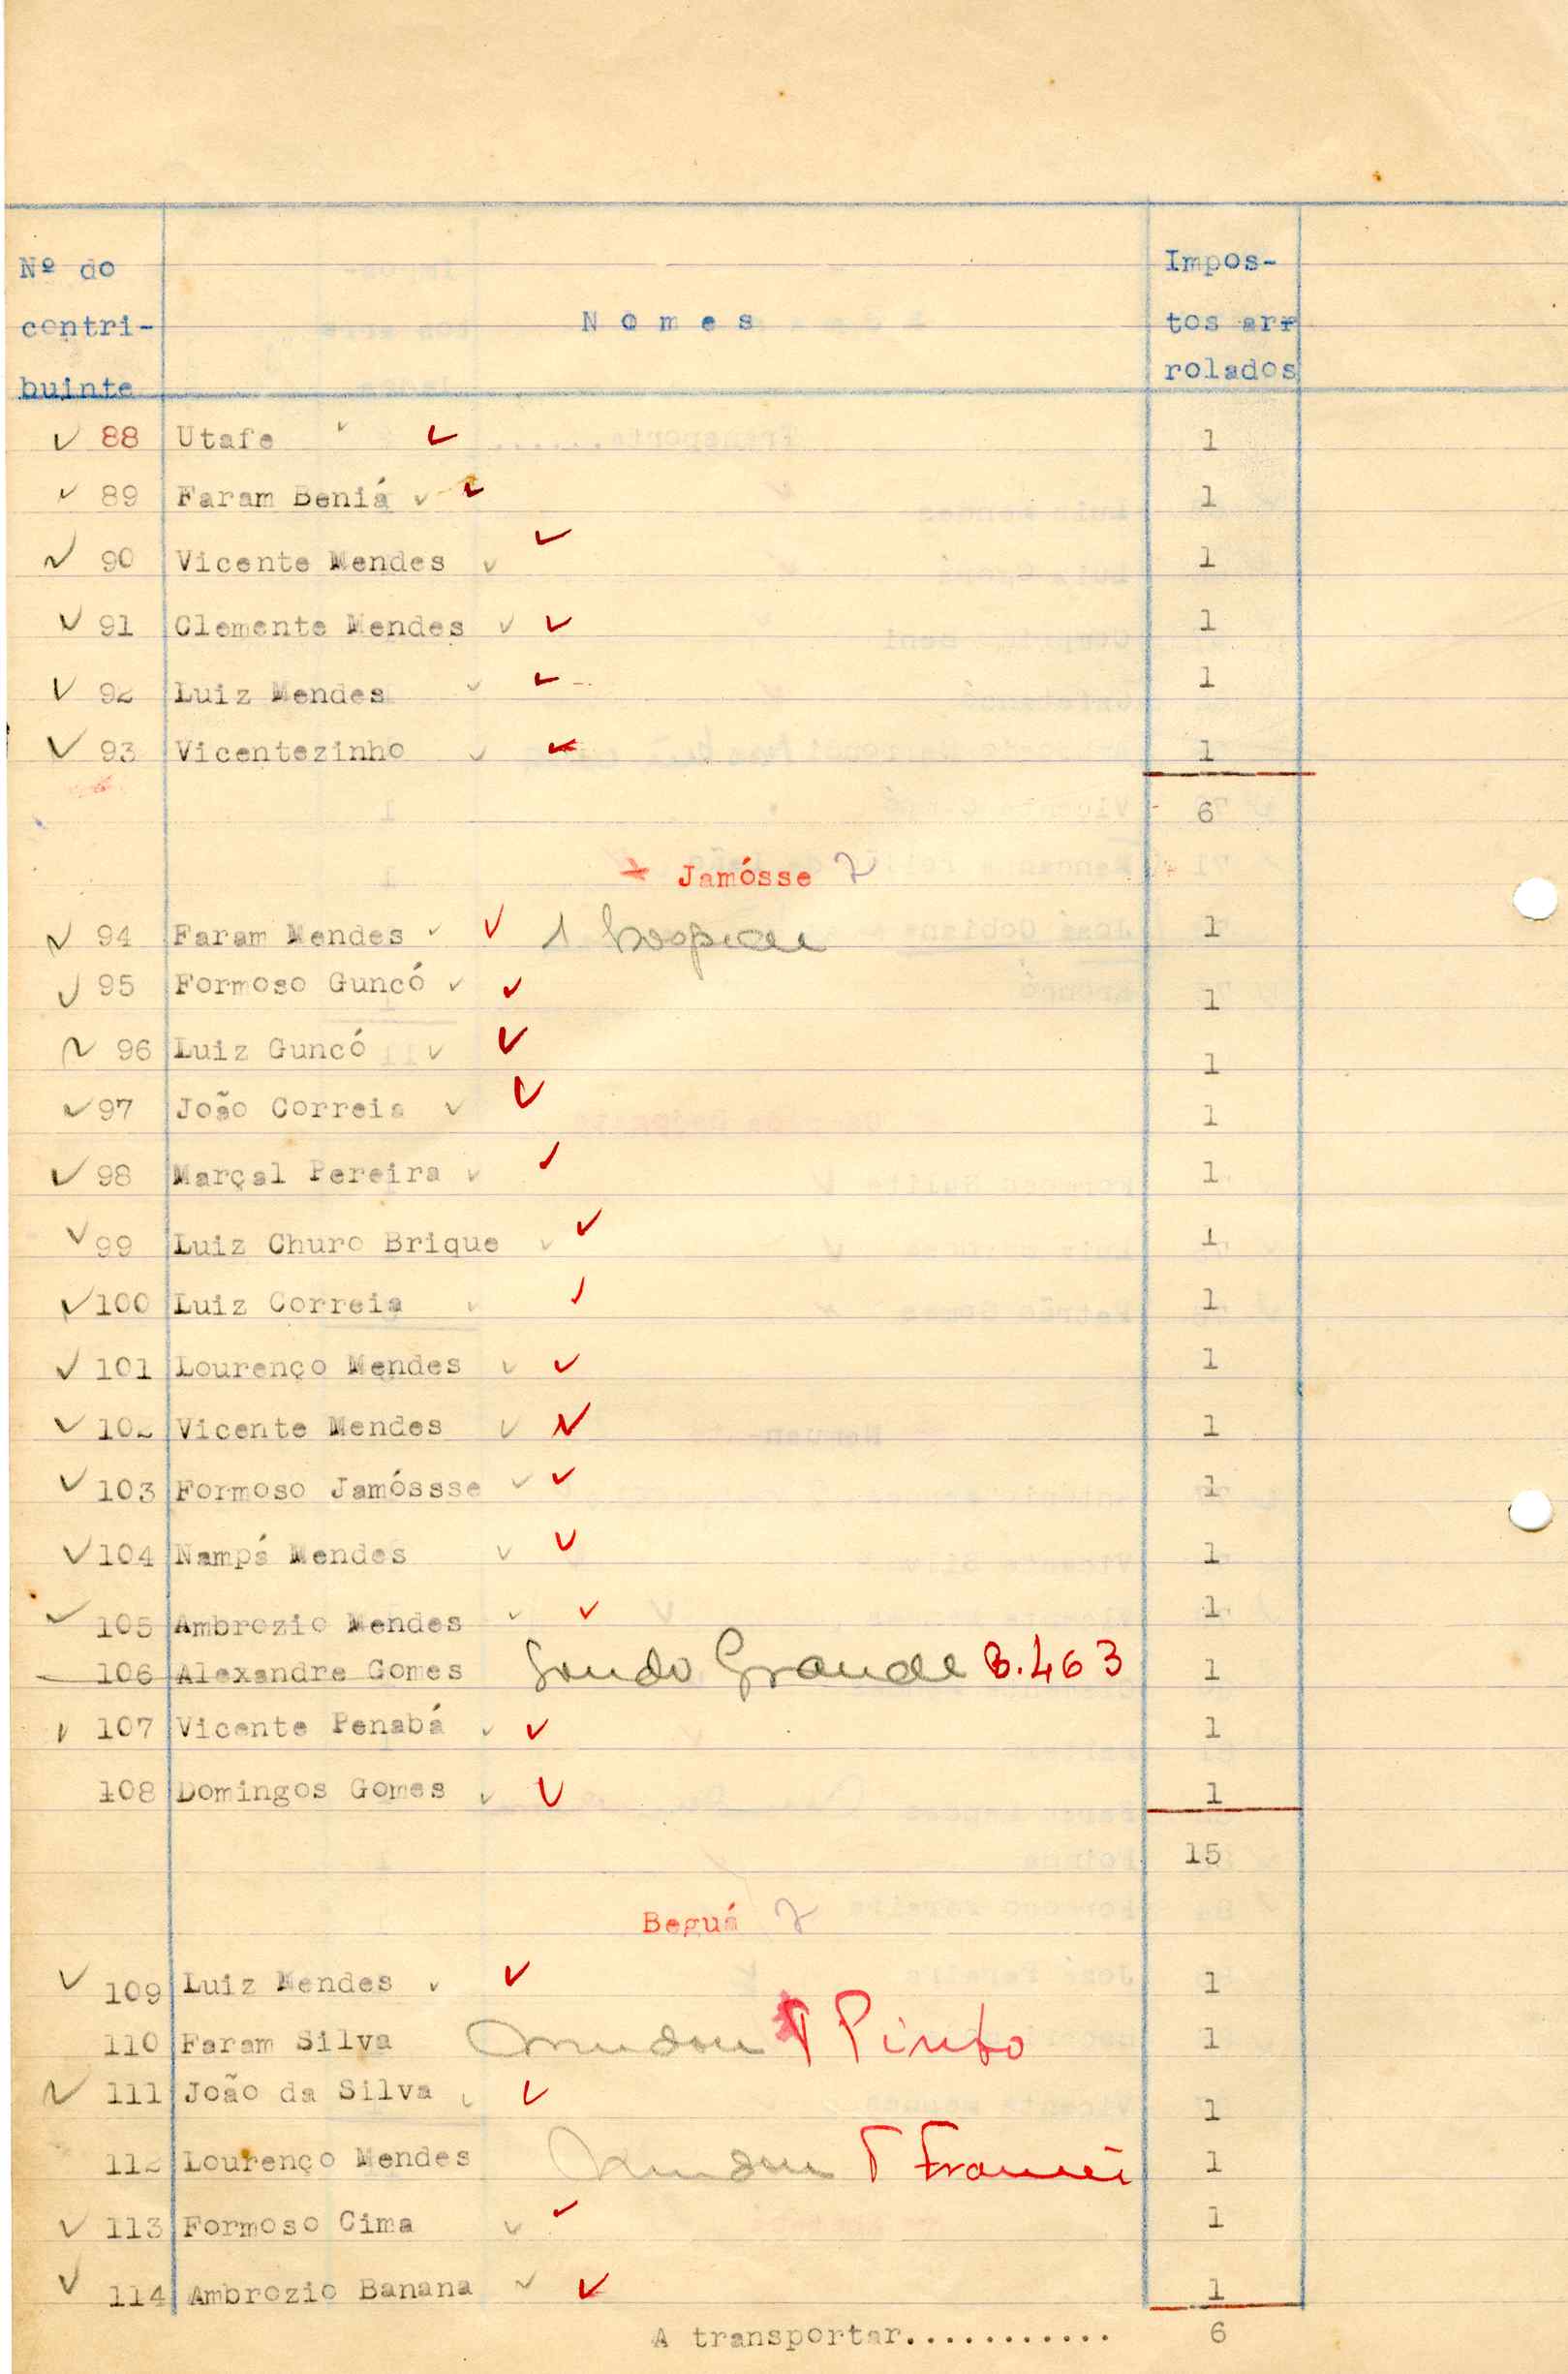 Nº do
contri-
buinte
N o m e s
Impos-
tos arr
rolados
88 Utafe 1
89 Faram Beniá 1
90 Vicente Mendes 1
91 Clemente Mendes 1
92 Luiz Mendes 1
93 Vicentezinho 1
6
Jamósse
94 Faram Mendes 1
95 Formoso Guncó 1
96 Luiz Guncó 1
97 João Correia 1
98 Marçal Pereira 1
99 Luiz Churo Brique 1
100 Luiz Correia 1
101 Lourenço Mendes 1
102 Vicente Mendes 1
103 Formoso Jamóssse 1
104 Nampá Mendes 1
105 Ambrozio Mendes 1
106 Alexandre Gomes Grande B.463 1
107 Vicente Penabá 1
108 Domingos Gomes 1
15
Beguá
109 Luiz Mendes 1
110 Faram Silva mudou P Pinto 1
111 João da Silva 1
112 Lourenço Mendes mudou 1
113 Formoso Cima 1
114 Ambrozio Banana 1
A transportar........... 6